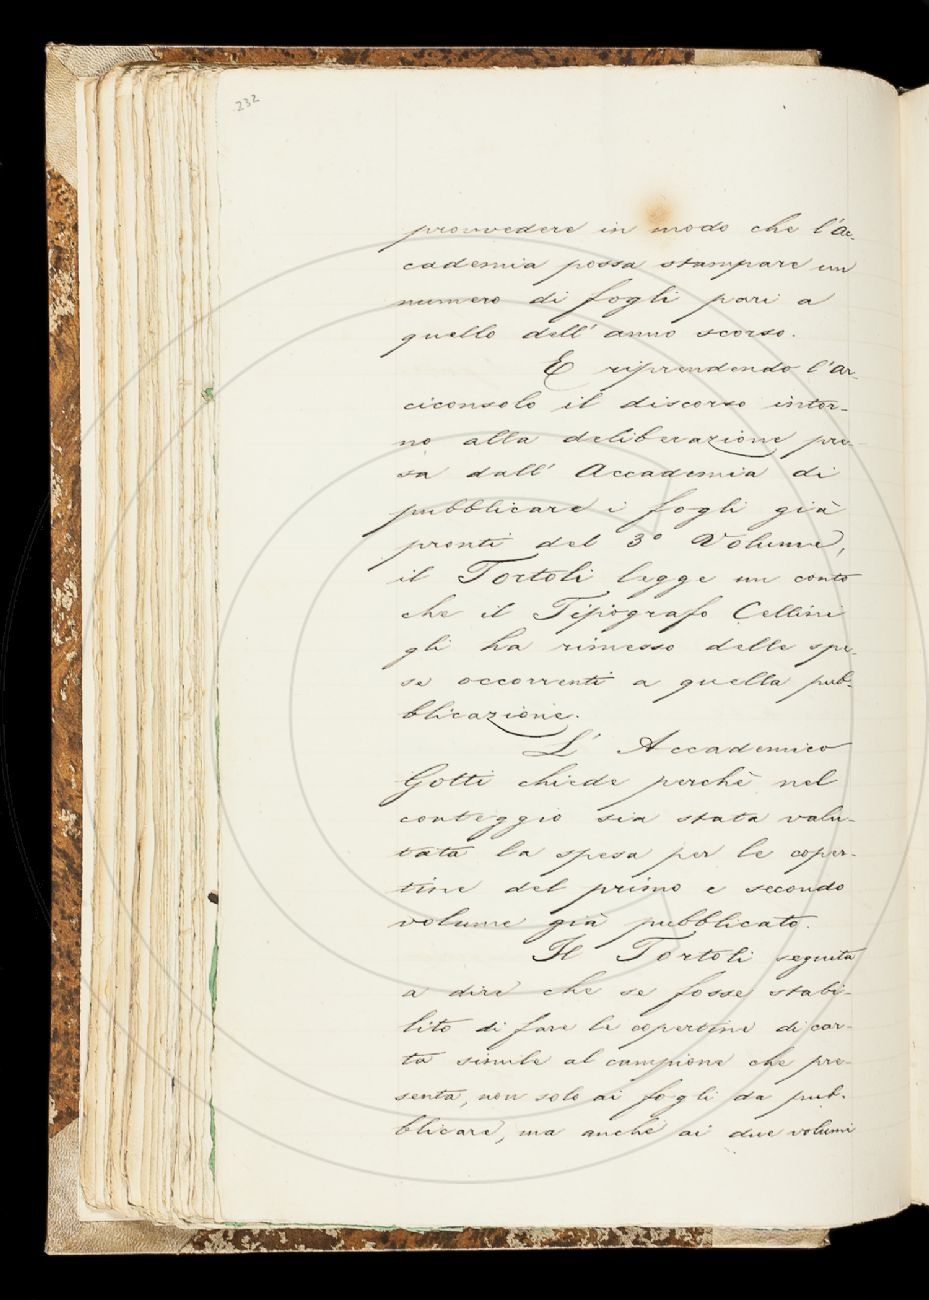 232
provvedere in modo che l'Ac-
cademia possa stampare un
numero di fogli pari a
quello dell'anno scorso.
E riprendendo l'Ar-
ciconsolo il discorso intor-
no alla deliberazione pre-
sa dall'Accademia di
pubblicare i fogli già
pronti del 3º Volume,
il Tortoli legge un conto
che il Tipografo Cellini
gli ha rimesso delle spe-
se occorrenti a quella pub-
blicazione.
L'Accademico
Gotti chiede perchè nel
conteggio sia stata valu-
tata la spesa per le coper-
tine del primo e secondo
volume già pubblicato.
Il Tortoli seguita
a dire che se fosse stabi-
lito di fare le copertine di car-
ta simile al campione che pre-
senta, non solo ai fogli da pub-
blicare, ma anche ai due volumi